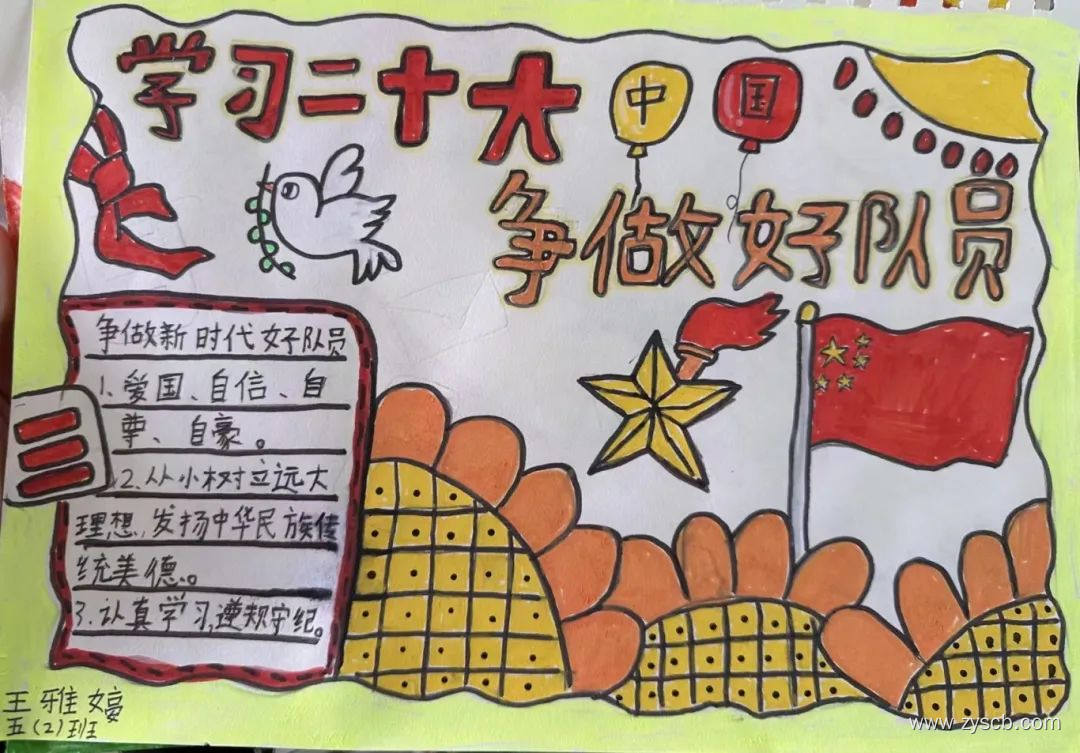 学习二十大
中国
争做好队员
争做新时代好队员
1.爱国、自信、自
尊、自豪。
2.从小树立远大
理想,发扬中华民族传
统美德。
3.认真学习,遵规守纪。
王雅婷
五(2)班
www.zyscb.com